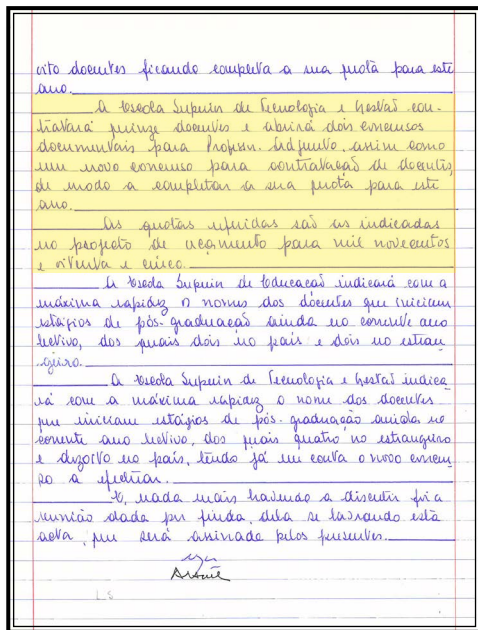 oito docentes ficando completa a sua quota para este
ano.
A Escola Superior de Tecnologia e Gestão con-
tratará quinze docentes e abrirá dois concursos
documentais para Professor Adjunto, assim como
um novo concurso para contratação de docentes,
de modo a completar a sua quota para este
ano.
As quotas referidas são as indicadas
no projecto de orçamento para mil novecentos
e oitenta e cinco.
A Escola Superior de Educação indicará com a
máxima rapidez o nomes dos docentes que iniciam
estágios de pós-graduação ainda no corrente ano
lectivo, dos quais dois no país e dois no estran-
geiro.
A Escola Superior de Tecnologia e Gestão indica-
rá com a máxima rapidez o nome dos docentes
que iniciam estágios de pós-graduação ainda no
corrente ano lectivo, dos quais quatro no estrangeiro
e dezoito no país, tendo já em conta o novo concur-
so a efectuar.
E, nada mais havendo a discutir foi a
reunião dada por finda, dela se lavrando esta
acta, que será assinada pelos presentes.
L.S